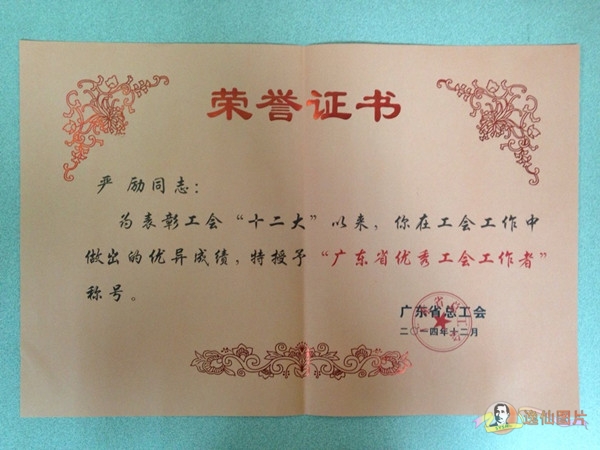 荣誉证书
严励同志：
为表彰工会“十二大”以来，你在工会工作中
做出的优异成绩，特授予“广东省优秀工会工作者”
称号。
广东省总工会
二〇一四年十二月
逸仙图片